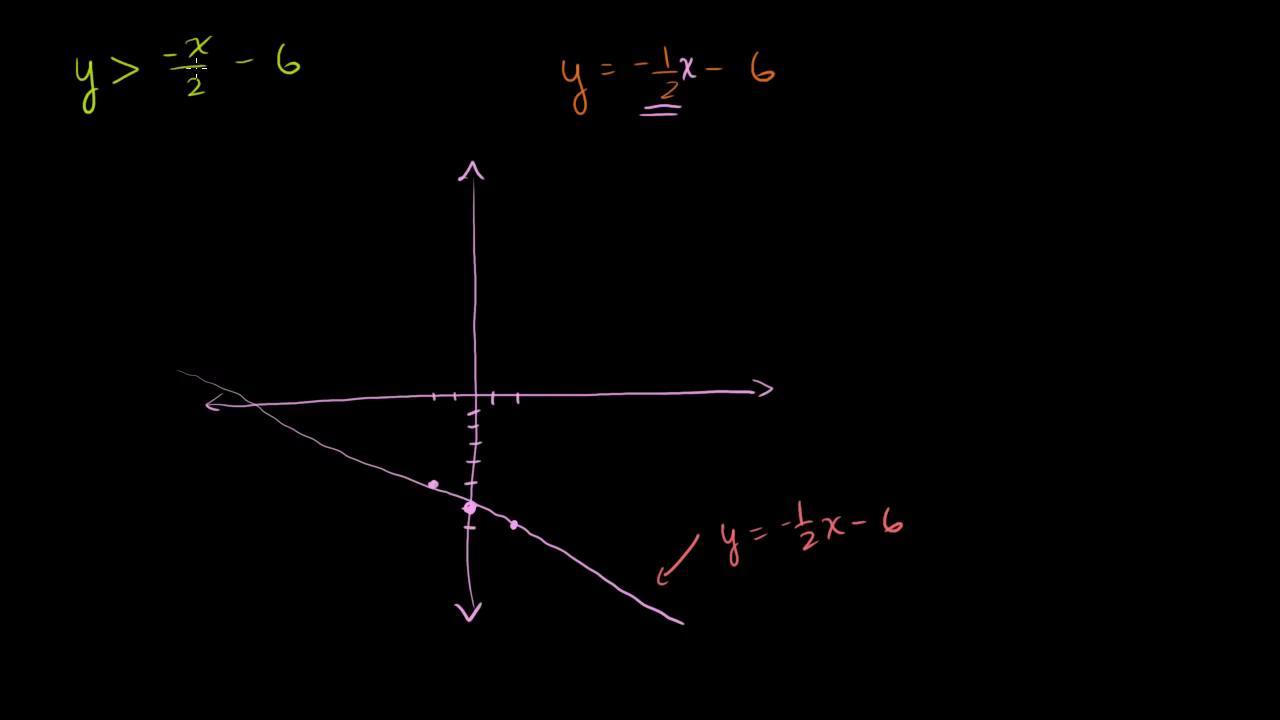 y > -x/2 - 6
y = -1/2 x - 6
y = -1/2 x - 6